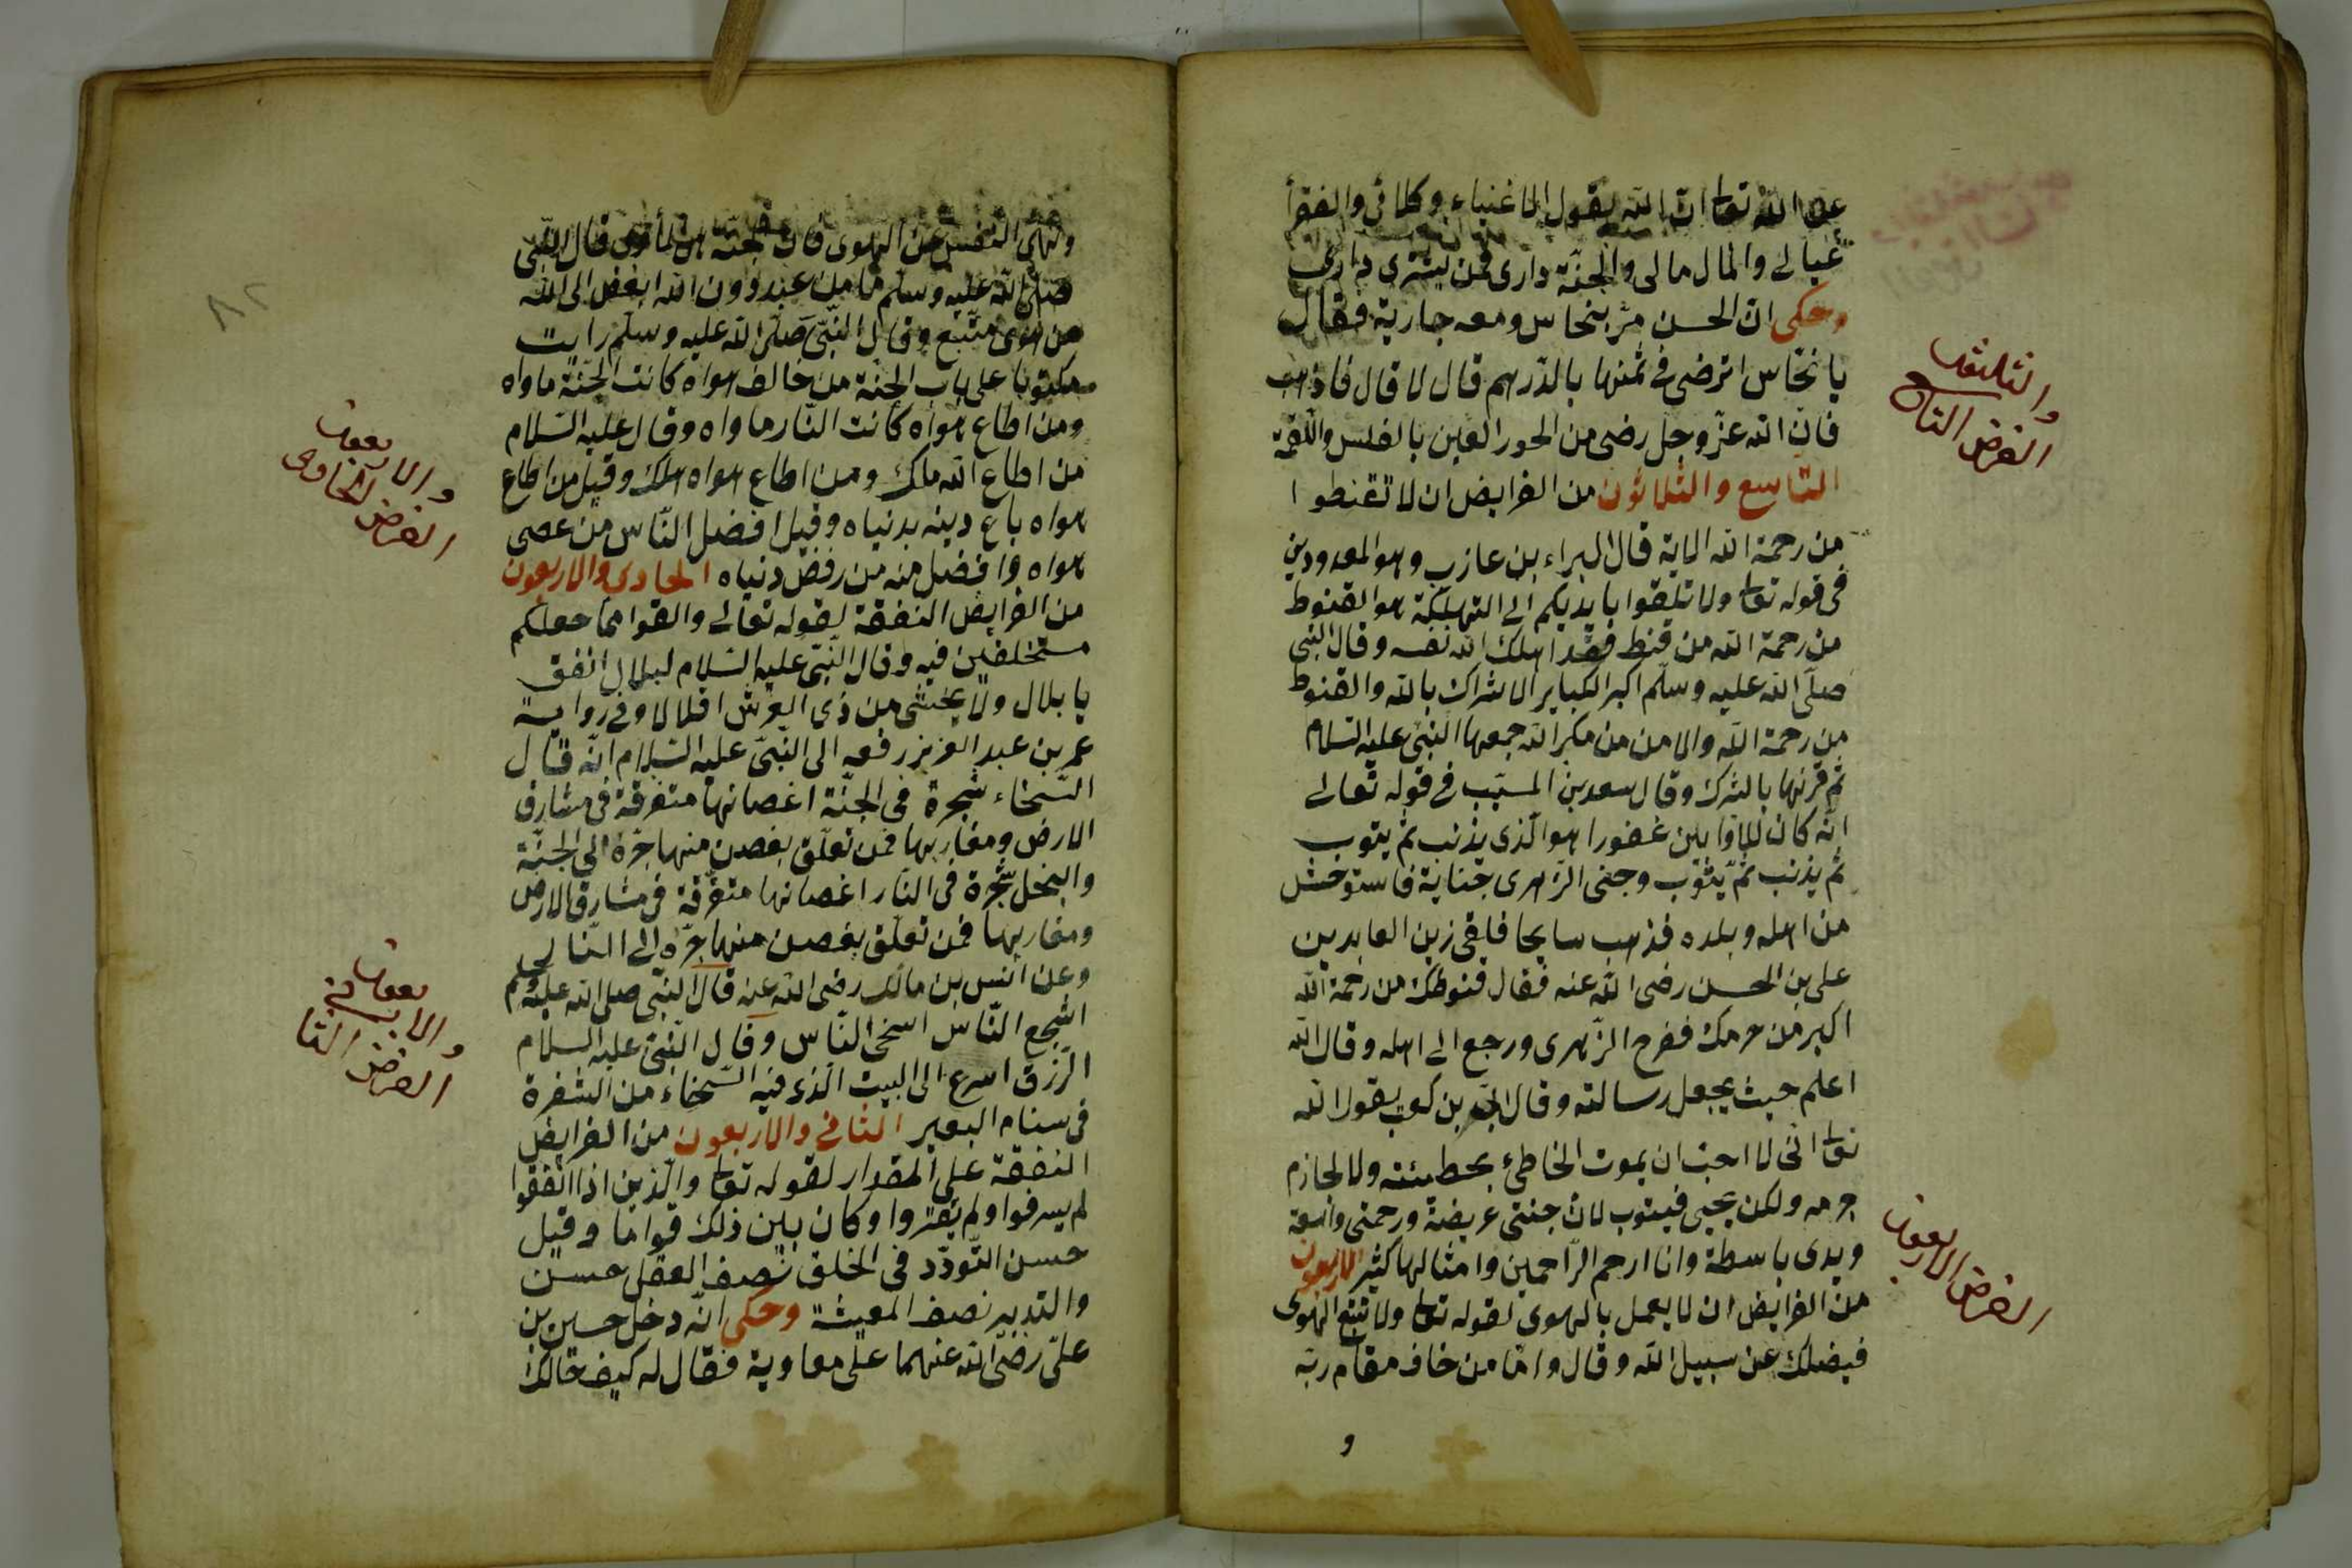 عن الله تعا ان الله يقول الاغنياء وكلائى والفقرأ
عيالى والمال مالى والجنّة دارى فمن يشترى دارى
وحكى ان الحسن مرّ بنخاس ومعه جارية فقال
يا نخّاس اترضى فى ثمنها بالدّرهم قال لا قال فاذهب
فانّ الله عزّ وجل رضى من الحور العين بالفلس واللّقمة
التاسع والثلاثون من الفرايض ان لا تقنطوا
من رحمة الله الاية قال البراء بن عازب وهو المعدودين
فى قوله تعا ولا تلقوا بايديكم الى التهلكة هو القنوط
من رحمة الله من قنط فقد اهلك الله نفسه وقال النبى
صلّى الله عليه وسلّم اكبر الكباير الاشراك بالله والقنوط
من رحمة الله والامن من مكر الله جمعها النبىّ عليه السّلام
ثم قرنها بالشرك وقال سعد بن المسيّب فى قوله تعالى
انّه كان للاوّابين غفورا هو الّذى يذنب ثم يتوب
ثم يذنب ثم يتوب وجنى الزّهرى جناية فاستوحش
من اهله وبلده فذهب سايحا فلقى زين العابدين
على بن الحسن رضى الله عنه فقال قنوطك من رحمة الله
اكبر من جرمك ففرح الزّهرى ورجع الى اهله وقال الله
اعلم حيث يجعل رسالته وقال ابىّ بن كعب يقول الله
تعا انّى لا احبّ ان يموت الخاطئ بخطيئته ولا الجازم
جرمه ولكن يحيى فيتوب لانّ جنتى عريضة ورحمتى واسعة
ويدى باسطة وانا ارحم الرّاحمين وامثالها كثير الاربعون
من الفرايض ان لا يعمل بالهوى لقوله تعا ولا تتبع الهوى
فيضلك عن سبيل الله وقال وامّا من خاف مقام ربّه
و
والثلثون
الفرض التاسع
الفرض الاربعون
ونهى النّفس عن الهوى فان الجنّة هى المأوى قال النّبى
صلّى الله عليه وسلّم ما من عبد دون الله ابغض الى الله
من هوى متّبع وقال النّبىّ صلّى الله عليه وسلّم رايت
مكتوبا على باب الجنّة من خالف هواه كانت الجنّة ماواه
ومن اطاع هواه كانت النّار ماواه وقال عليه السّلام
من اطاع الله ملك ومن اطاع هواه هلك وقيل من اطاع
هواه باع دينه بدنياه وقيل افضل النّاس من عصى
هواه وافضل منه من رفض دنياه الحادى والاربعون
من الفرايض النفقة لقوله تعالى وانفقوا مما جعلكم
مستخلفين فيه وقال النّبىّ عليه السّلام لبلال انفق
يا بلال ولا يخشى من ذى العرش اقلالا وفى رواية
عمر بن عبد العزيز رفعه الى النّبىّ عليه السّلام انّه قال
السّخاء شجرة فى الجنّة اغصانها متفرقة فى مشارق
الارض ومغاربها فمن تعلّق بغصن منها جرّه الى الجنّة
والبخل شجرة فى النّار اغصانها متفرّقة فى مشارق الارض
ومغاربها فمن تعلّق بغصن منها جرّه الى النّار
وعن انس بن مالك رضى الله عنه قال النّبى صلى الله عليه وسلم
اشجع النّاس اسخى النّاس وقال النّبىّ عليه السلام
الرّزق اسرع الى البيت الّذى فيه السّخاء من الشفرة
فى سنام البعير الثانى والاربعون من الفرايض
النفقة على المقدار لقوله تعا والّذين اذا انفقوا
لم يسرفوا ولم يقتروا وكان بين ذلك قواما وقيل
حسن التّودّد فى الخلق نصف العقل حسن
والتدبير نصف المعيشة وحكى انّه دخل حسين بن
علىّ رضى الله عنهما على معاوية فقال له كيف حالك
٨٢
والاربعون
الفرض الحادى
والاربعون
الفرض الثانى